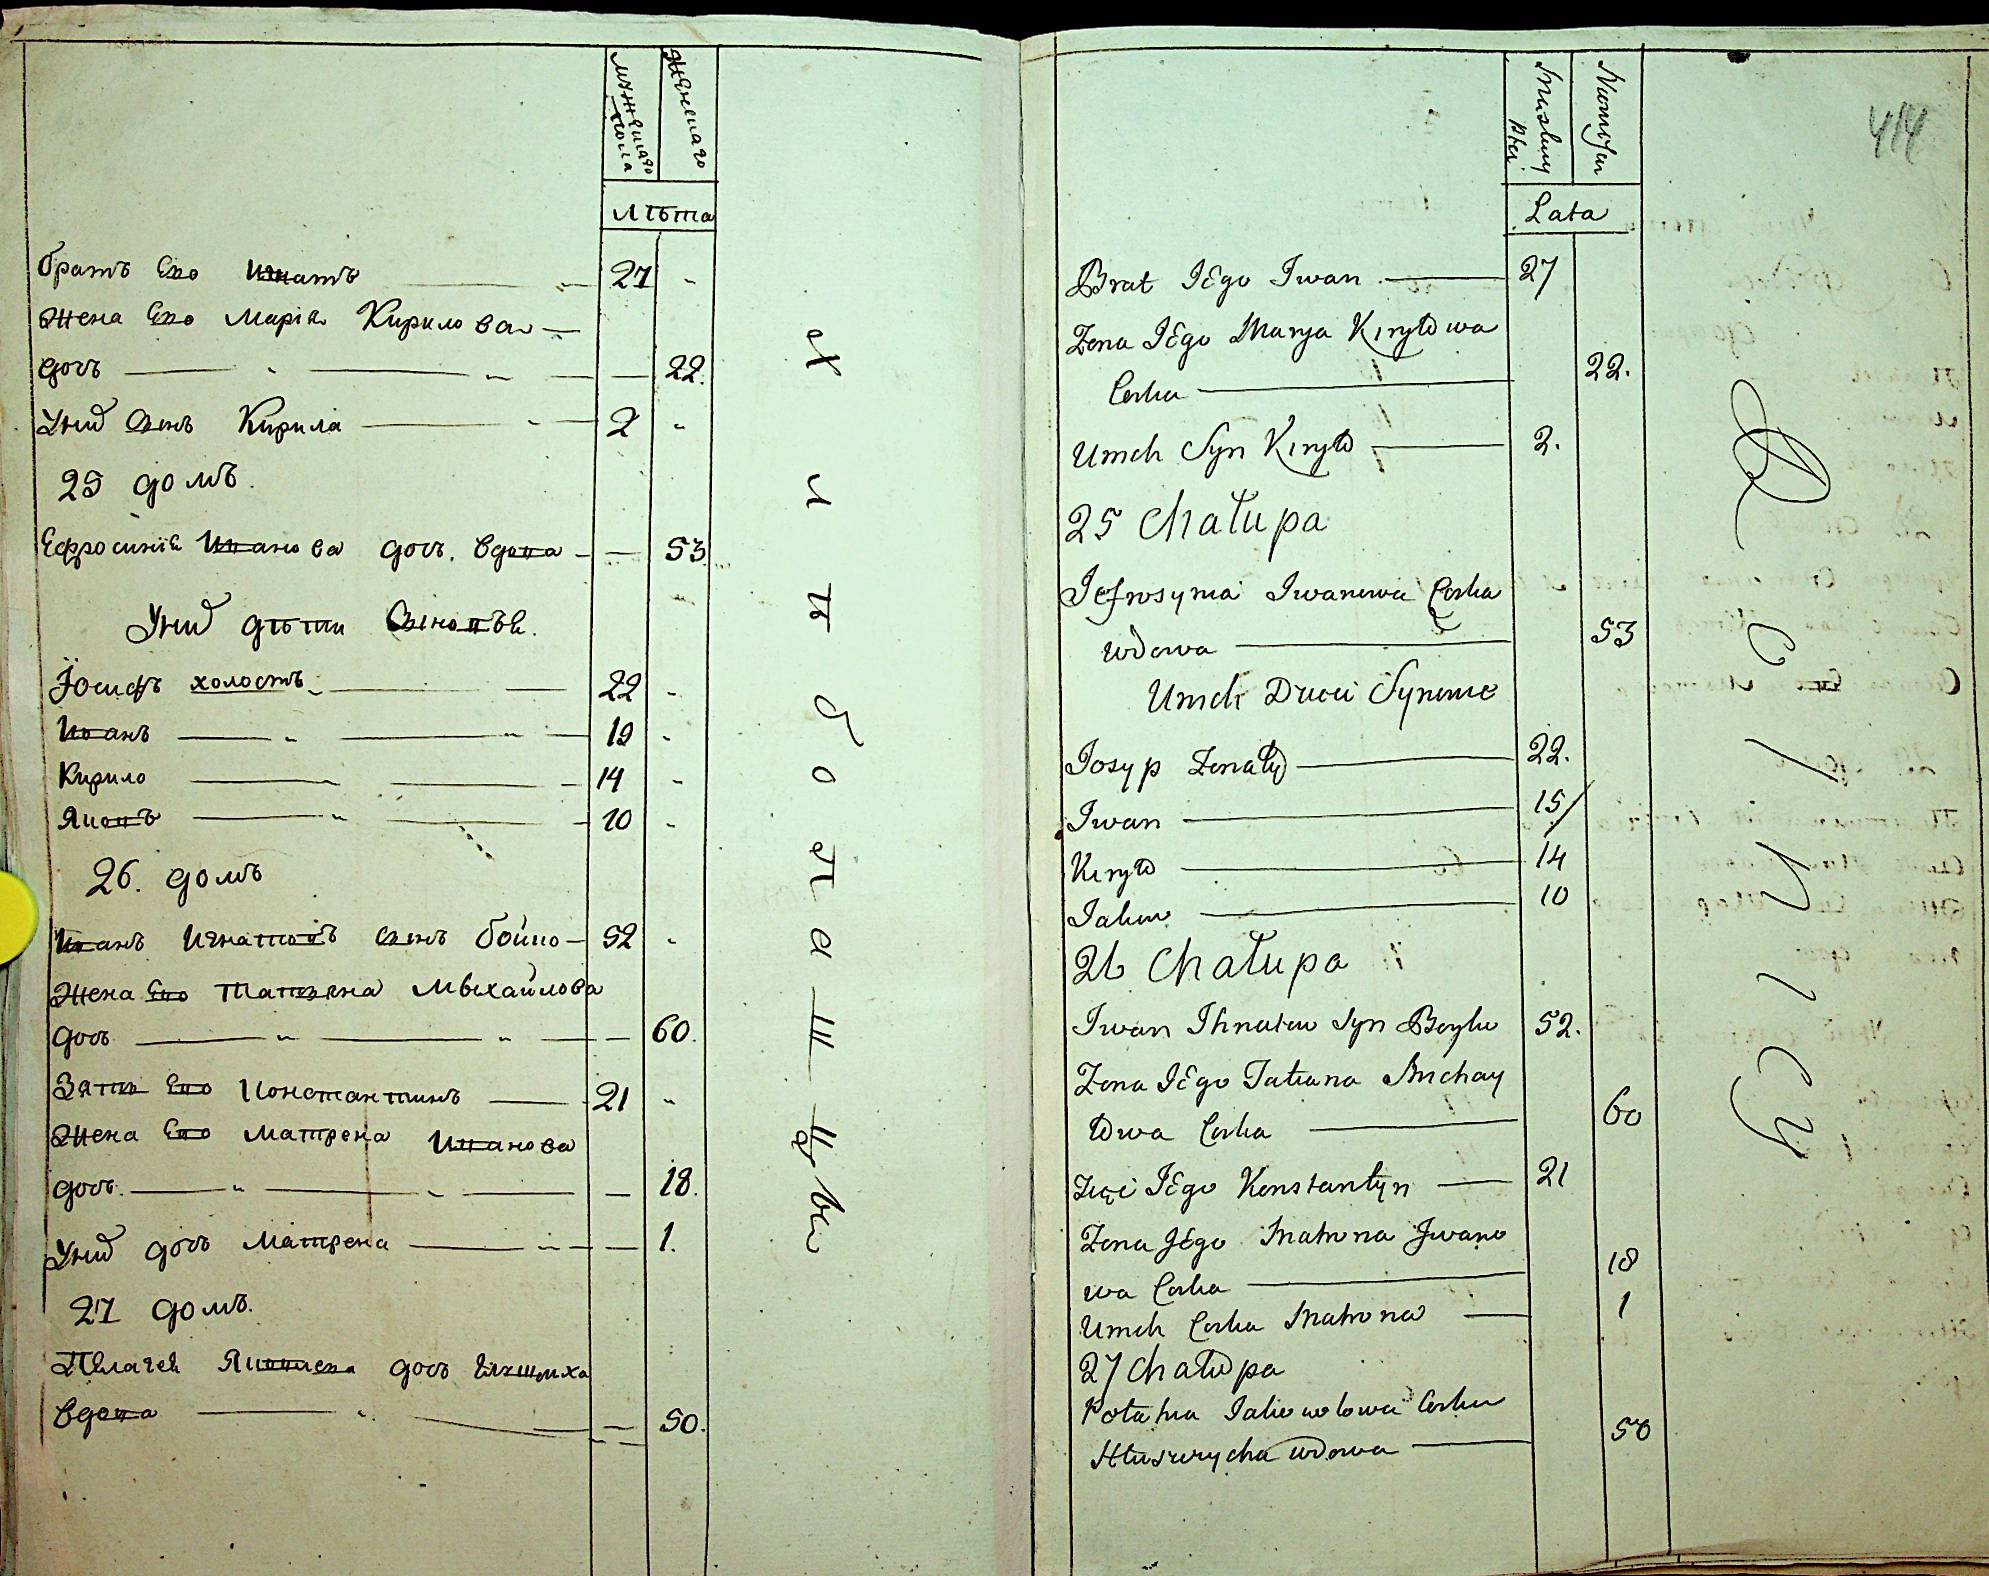 мужескаго пола
Женскаго
лѣта
братъ Его Игнатъ 27 -
Жена Его Марія Кирилова
дочь 22.
Унид сынъ Кирила 2 -
25 домъ.
Ефросинія Иванова дочь. вдова 53
Унид дѣти Сыновья.
Іосифъ холостъ 22 -
Иванъ 19 -
Кирило 14 -
Яковъ 10 -
26. домъ
Иванъ Игнатовъ сынъ бойко 52 -
Жена Его татьяна Михайлова
дочь 60.
Зять Его Константинъ 21 -
Жена Его матрена Иванова
дочь. 18.
Унид дочь матрена 1.
27 домъ.
Пелагея Яковлева дочь
вдова 50.
Хлѣбопашцы
414
Muskuy Płci
Lata
Brat JEgo Iwan 27
Zona JEgo Marya Kiryłowa
Corka 22.
Umch Syn Kiryło 2.
25 Chałupa
Jefrosynia Iwanowa Corka
wdowa 53
Umch Dzieci Synowie
Josyp Zonaty 22.
Iwan 15/
Kiryło 14
Jakow 10
26 Chałupa
Iwan Ihnatow Syn Boyko 52.
Zona JEgo Tatiana Michay
łowa Corka 60
Zięć JEgo Konstantyn 21
Zona JEgo Matrona Iwano
wa Corka 18
Umch Corka Matrona 1
27 Chałupa
Połahia Jakowolowa Corka
Hłuszczycha wdowa 50
Rolnicy